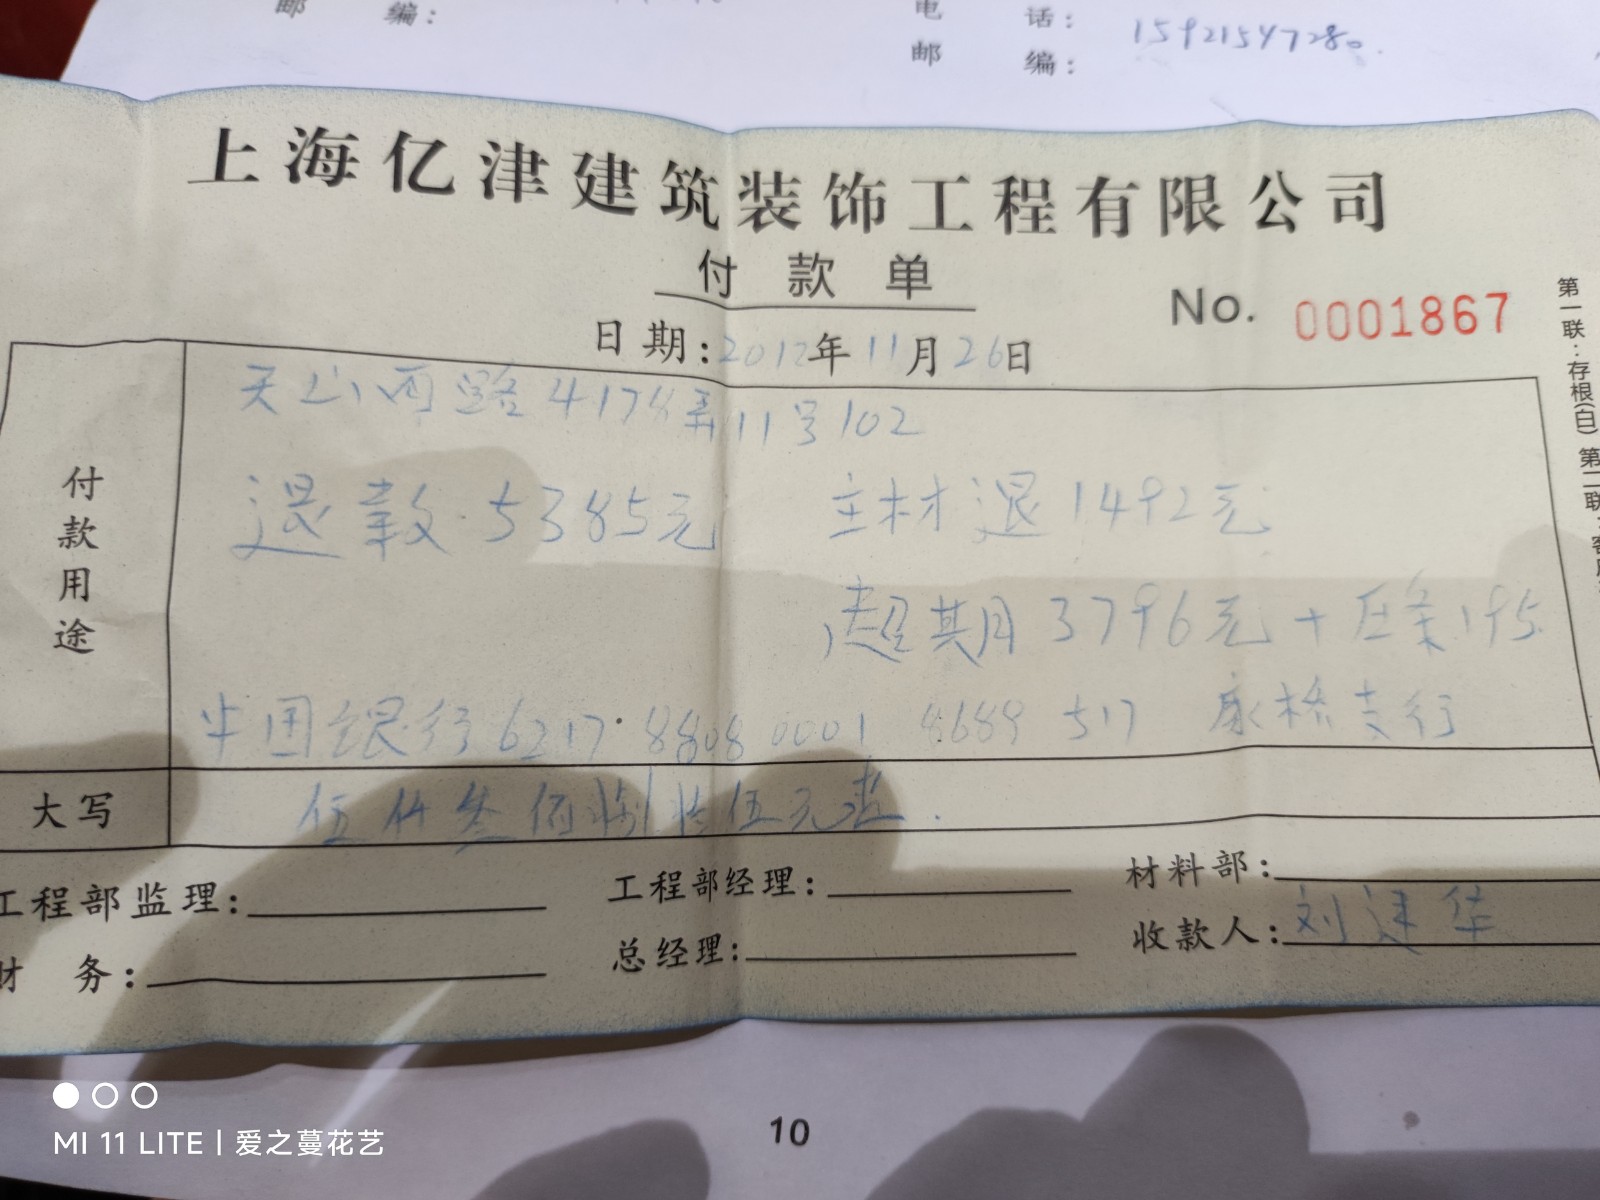 邮 编：
电 话：15921547280
邮 编：
上海亿津建筑装饰工程有限公司
付款单
No. 0001867
日期：2012年11月26日
第一联：存根(白) 第二联：客
付款用途
天山西路4174弄11号102
退款 5385元 主材退1492元
超期3796元+压条195
中国银行6217 8808 0001 8689 517 康桥支行
大写
伍仟叁佰捌拾伍元整.
工程部监理：
工程部经理：
材料部：
财 务：
总经理：
收款人：刘建华
MI 11 LITE | 爱之蔓花艺
10